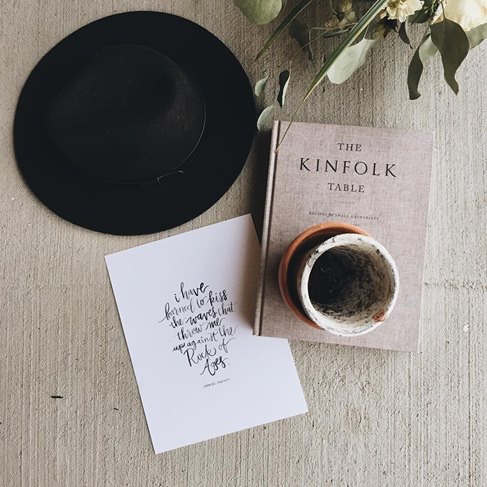 THE
KINFOLK
TABLE
RECIPES for SMALL GATHERINGS
i have
learned to kiss
the waves that
throw me
up against the
Rock of
Ages.